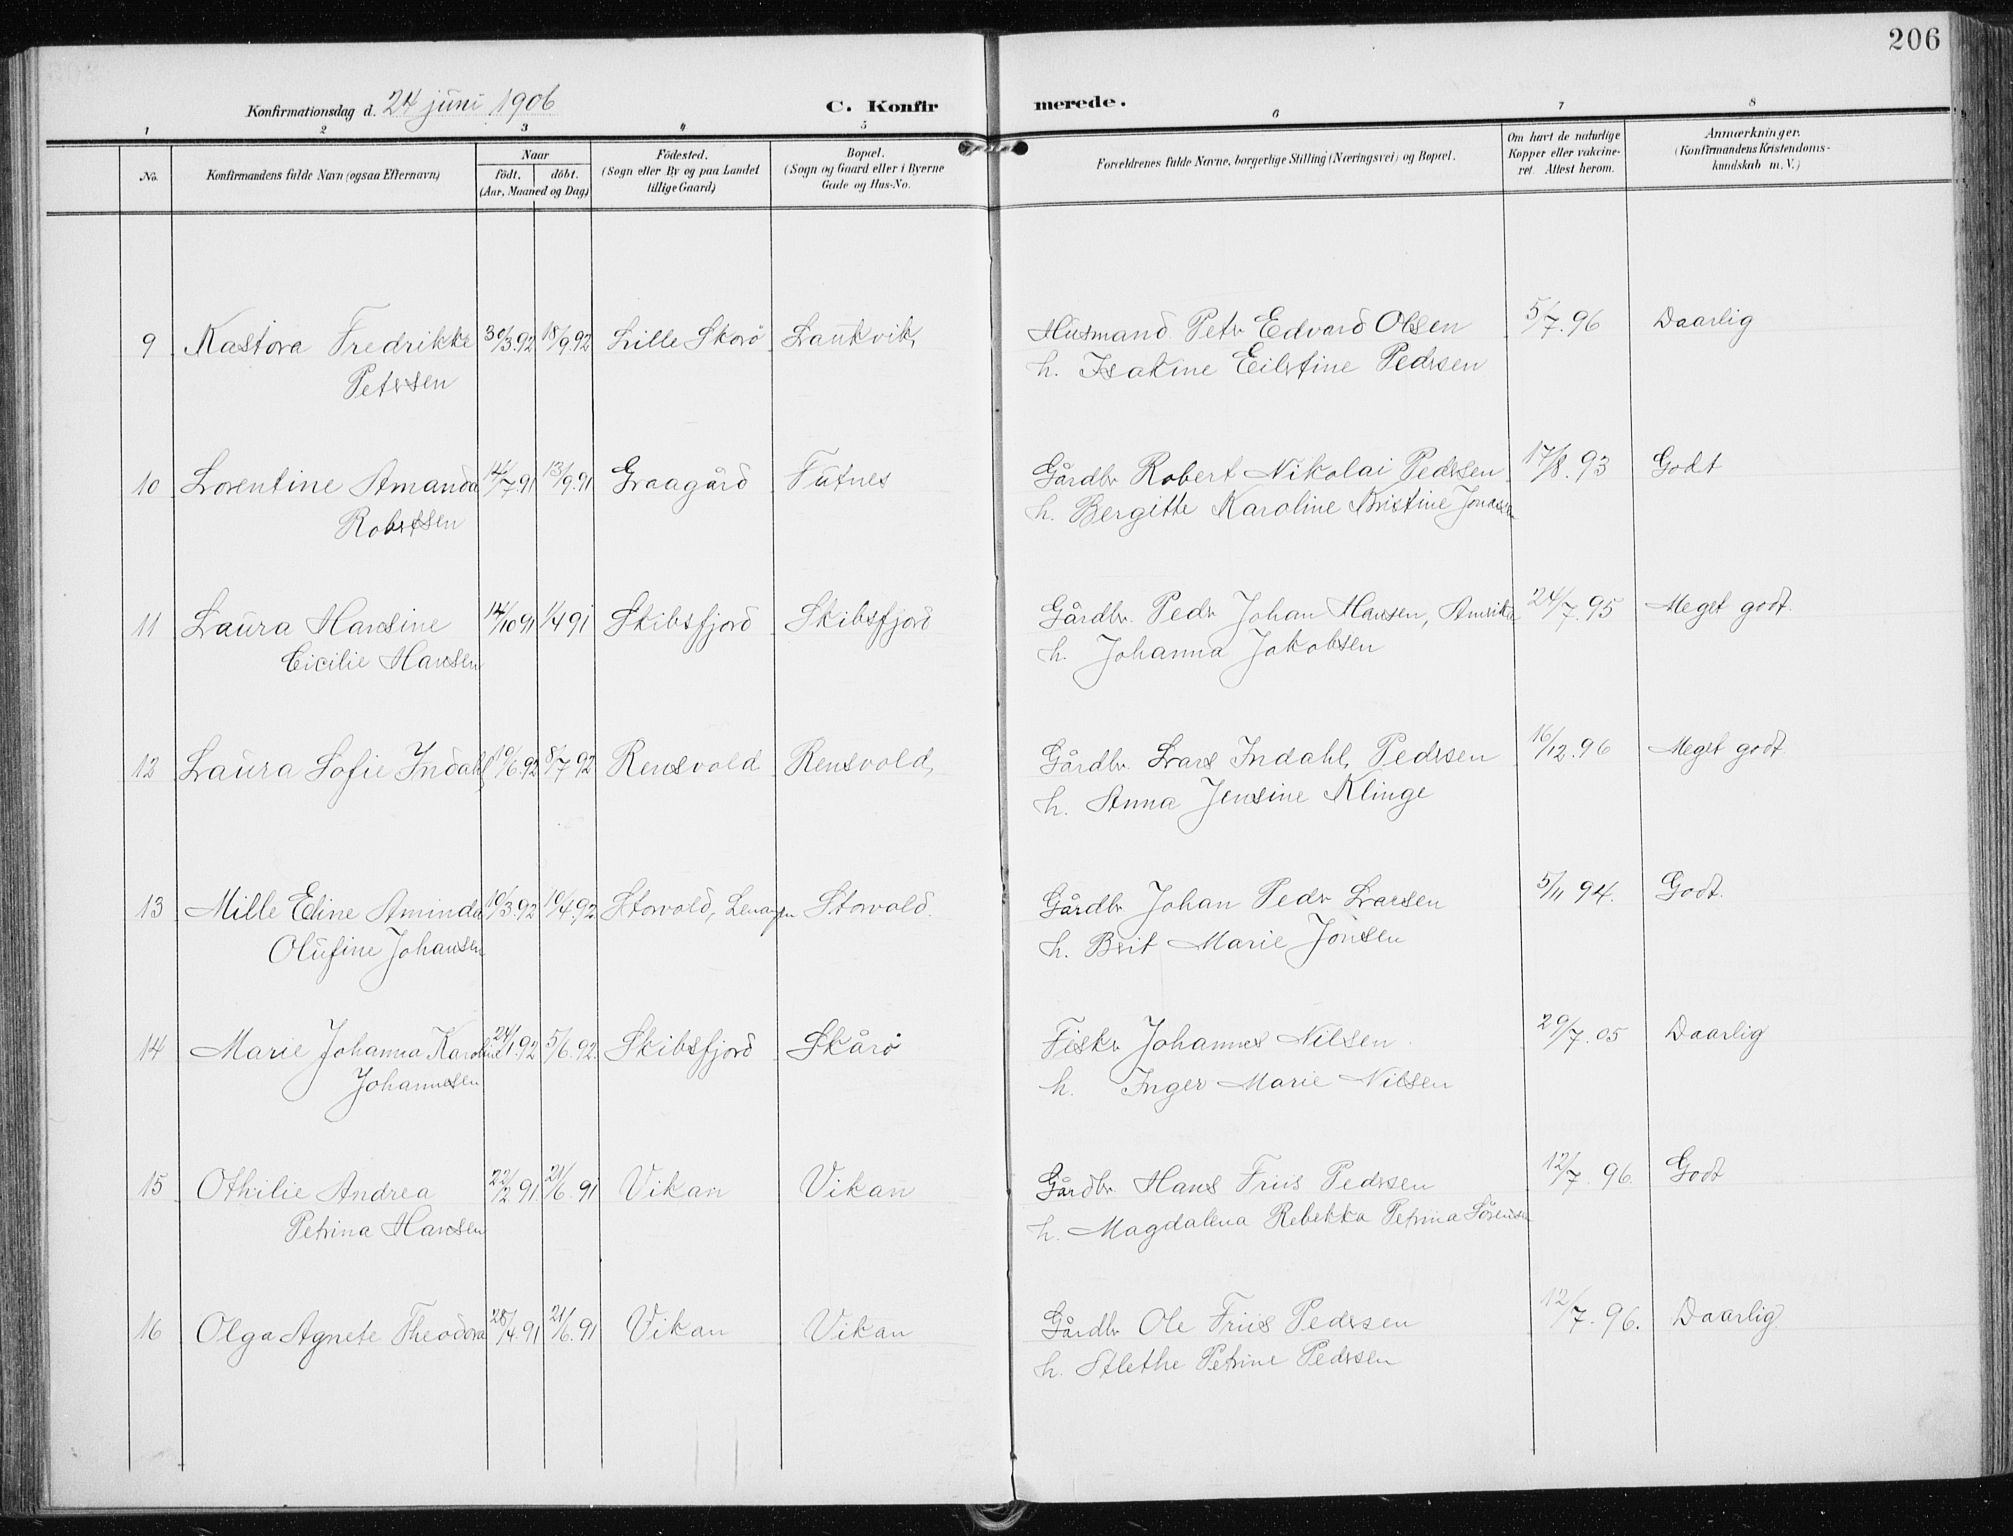 206
Konfirmationsdag d. 24 juni 1906
C. Konfirmerede.
1 2 3 4 5 6 7 8
No.
Konfirmandens fulde Navn (ogsaa Efternavn)
Naar
födt. döbt.
(Aar, Maaned og Dag)
Födested.
(Sogn eller By og paa Landet
tillige Gaard)
Bopæl.
(Sogn og Gaard eller i Byerne
Gade og Hus-No.
Forældrenes fulde Navne, borgerlige Stilling (Næringsvei) og Bopæl.
Om havt de naturlige
Kopper eller vakcine-
ret. Attest herom.
Anmærkninger.
(Konfirmandens Kristendoms-
kundskab m. V.)
9 Kastora Fredrikke 30/3.92 18/9.92 Lille Skorö Lankvik, Husmand Petr Edvard Olsen 5/7.96 Daarlig
Petersen h. Isakine Eilertine Pedersen
10 Lorentine Amanda 14/7.91 13/9.91 Graagård Futnes Gårdbr Robert Nikolai Pedersen 17/8.93 Godt
Robertsen h. Bergitte Karoline Kristine Jonassen
11 Laura Hansine 14/10 91 1/4 91 Skibsfjord Skibsfjord Gårdbr. Peder Johan Hansen, Amerika 24/7.95 Meget godt.
Cicilie Hansen h. Johanna Jakobsen
12 Laura Sofie Indahl 10/6.92 8/7 92 Rensvold Rensvold, Gårdbr. Lars Indahl, Pedersen 16/12.96 Meget godt
h. Anna Jensine Klinge
13 Mille Eline Aminda 10/3.92 10/4.92 Storvold, Lenangen Storvold. Gårdbr Johan Peder Larsen 5/11 94. Godt.
Olufine Johansen h. Brit Marie Jonsen
14 Marie Johanna Karoline 24/1.92 5/6.92. Skibsfjord Skårø Fisker Johannes Nilsen. 29/7.05 Daarlig
Johannesen h. Inger Marie Nilsen
15 Othilie Andrea 22/2 91 21/6.91 Vikan Vikan Gårdbr. Hans Friis Pedersen 12/7.96. Godt
Petrina Hansen h. Magdalena Rebekka Petrina Sörensen
16 Olga Agnete Theodora 28/4.91 21/6.91 Vikan Vikan Gårdbr Ole Friis Pedersen 12/7.96. Daarlig
h. Petrine Pedersen